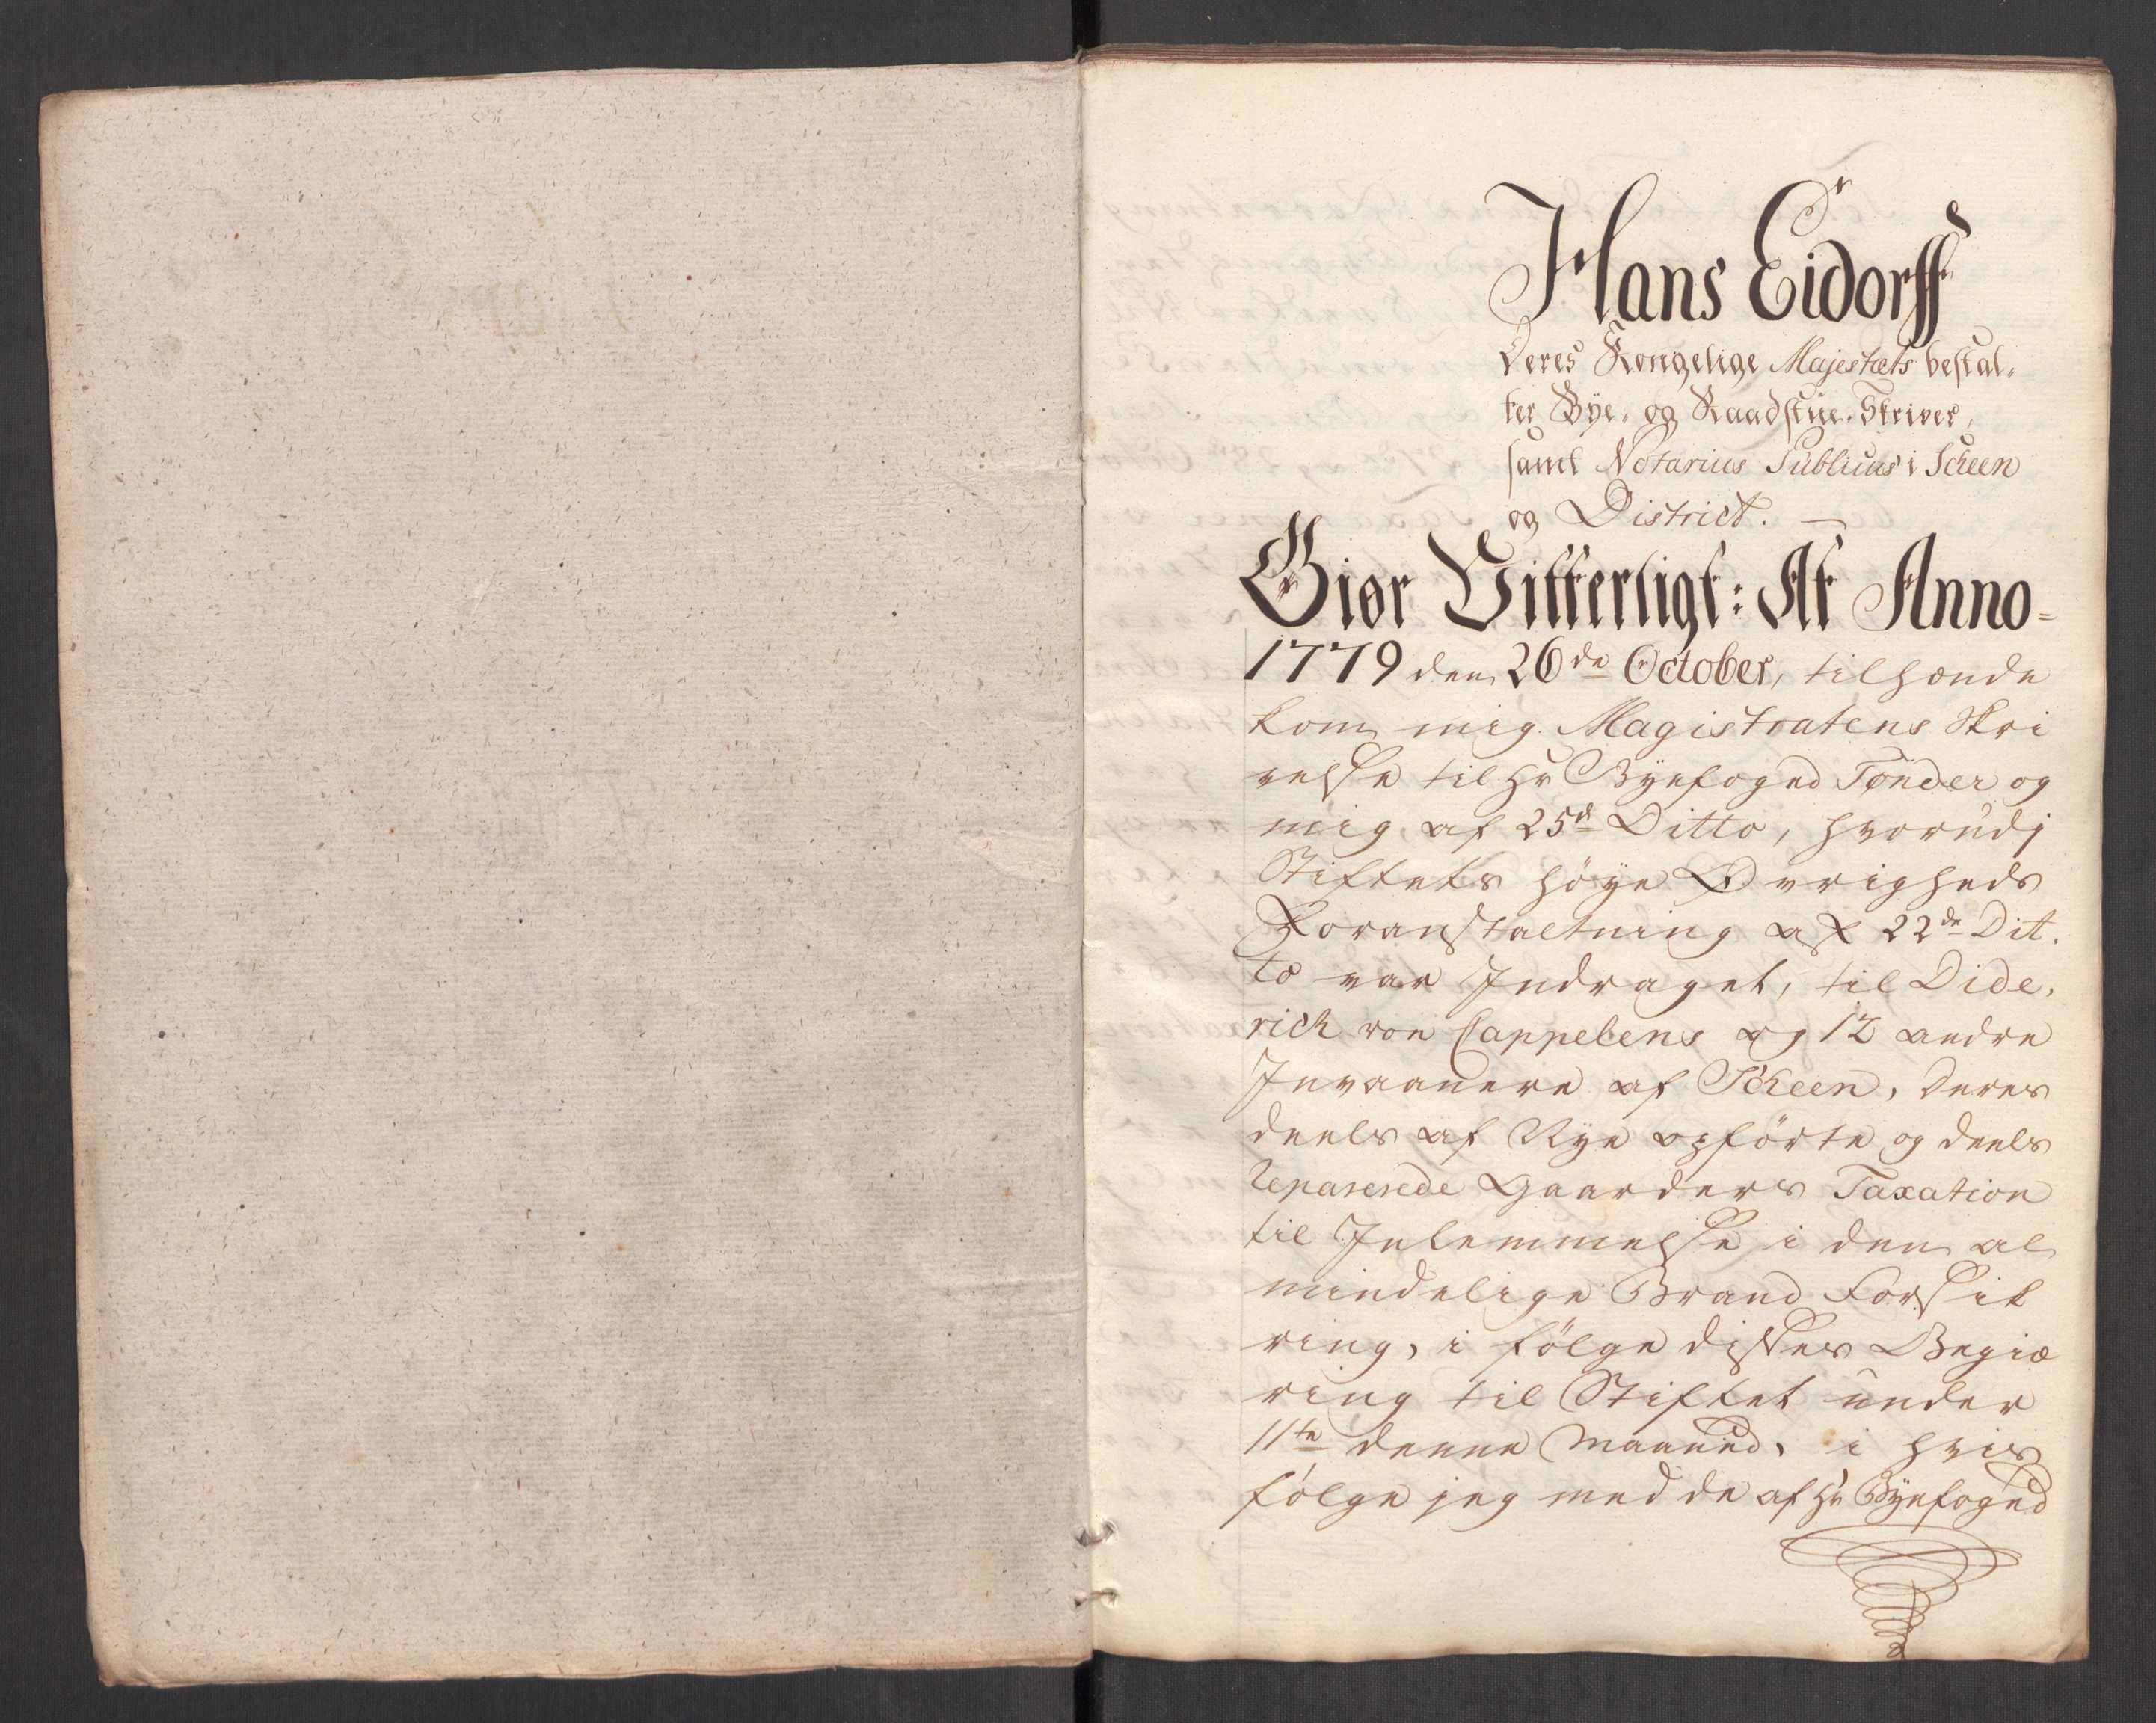 Hans Eidorff
Deres Kongelige Majestæts bestal-
ter Bye- og Raadstue-Skriver,
samt Notarius Publicus i Scheen
og District. —
Giør Vitterligt: At Anno-
1779 den 26de October, tilhænde
kom mig Magistratens Skri
velse til Hr Byefoged Tønder og
mig, af 25de Ditto, hvorudj
Stiftets høye Øvrigheds
Foranstaltning af 22de Dit-
to var Indraget, til Dide-
rich von Cappelens og 12 andre
Invaanere af Scheen, deres
deels af Nye opførte og deels
reparerede Gaarders Taxation
til Inlemmelse i den al
mindelige Brand Forsik
ring, i følge disses Begiæ
ring til Stiftet under
11te denne Maaned, i hvis
følge jeg med de af Hr Byefoged